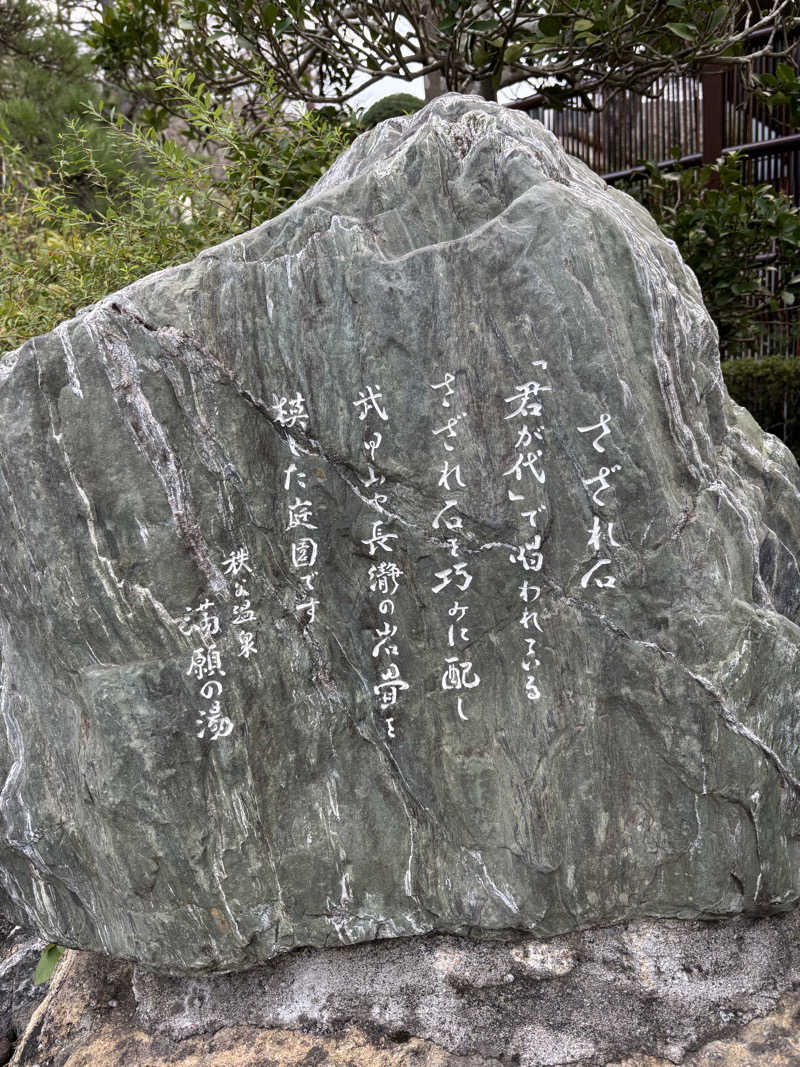 さざれ石
「君が代」で唱われている
さざれ石を巧みに配し
武甲山や長瀞の岩畳を
模した庭園です
秩父温泉
満願の湯